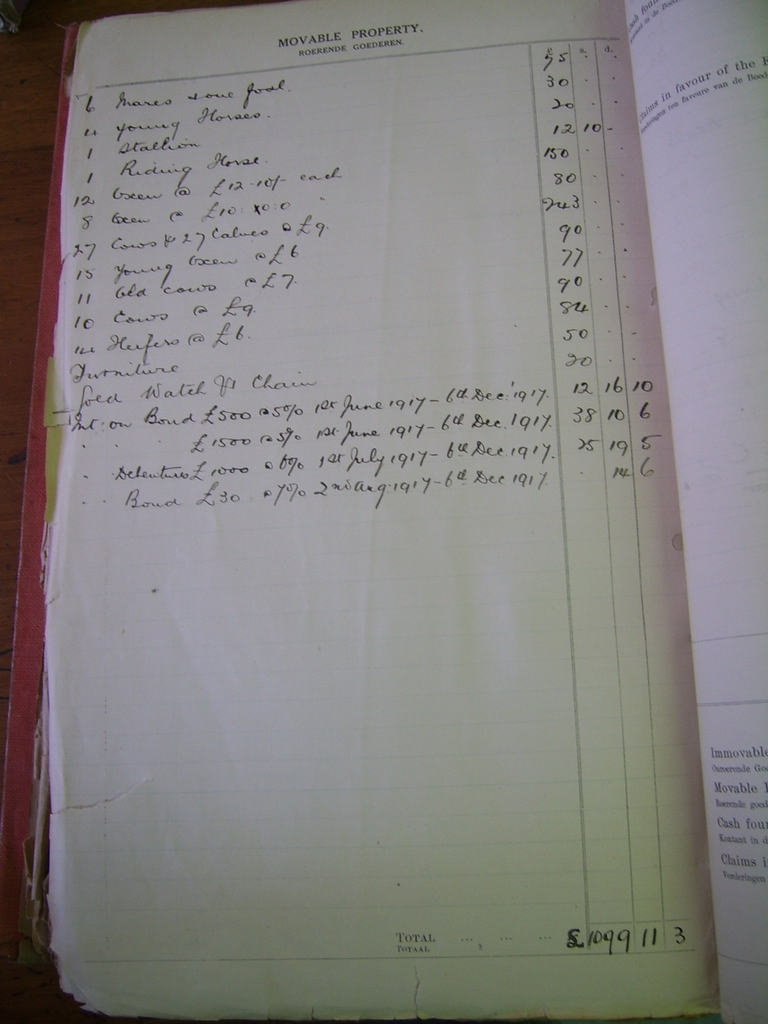 MOVABLE PROPERTY.
ROERENDE GOEDEREN.
£ s. d.
6 Mares & one foal. 75 . .
4 Young Horses. 30 . .
1 Stallion 20 . .
1 Riding Horse. 12 10 -
12 Oxen @ £12-10/- each 150 . .
8 Oxen @ £10:10:0 " 80 . .
27 Cows & 27 Calves @ £9. 243 . .
15 Young Oxen @ £6 90 . .
11 Old Cows @ £7. 77 . .
10 Cows @ £9. 90 . .
14 Heifers @ £6. 84 . .
Furniture 50 - -
Gold Watch & Chain 20 . .
Int: on Bond £500 @ 5% 1st June 1917 - 6th Dec: 1917. 12 16 10
" " £1500 @ 5% 1st June 1917 - 6th Dec. 1917. 38 10 6
" Debenture £1000 @ 6% 1st July 1917 - 6th Dec 1917. 25 19 5
" " Bond £30 @ 7% 2nd Aug. 1917 - 6th Dec 1917. . 14 6
TOTAL ... ... ... £1099 11 3
TOTAAL
Claims in favour of the
ten favoure van de
Immovable
Movable
Cash
Kontant in
Claims